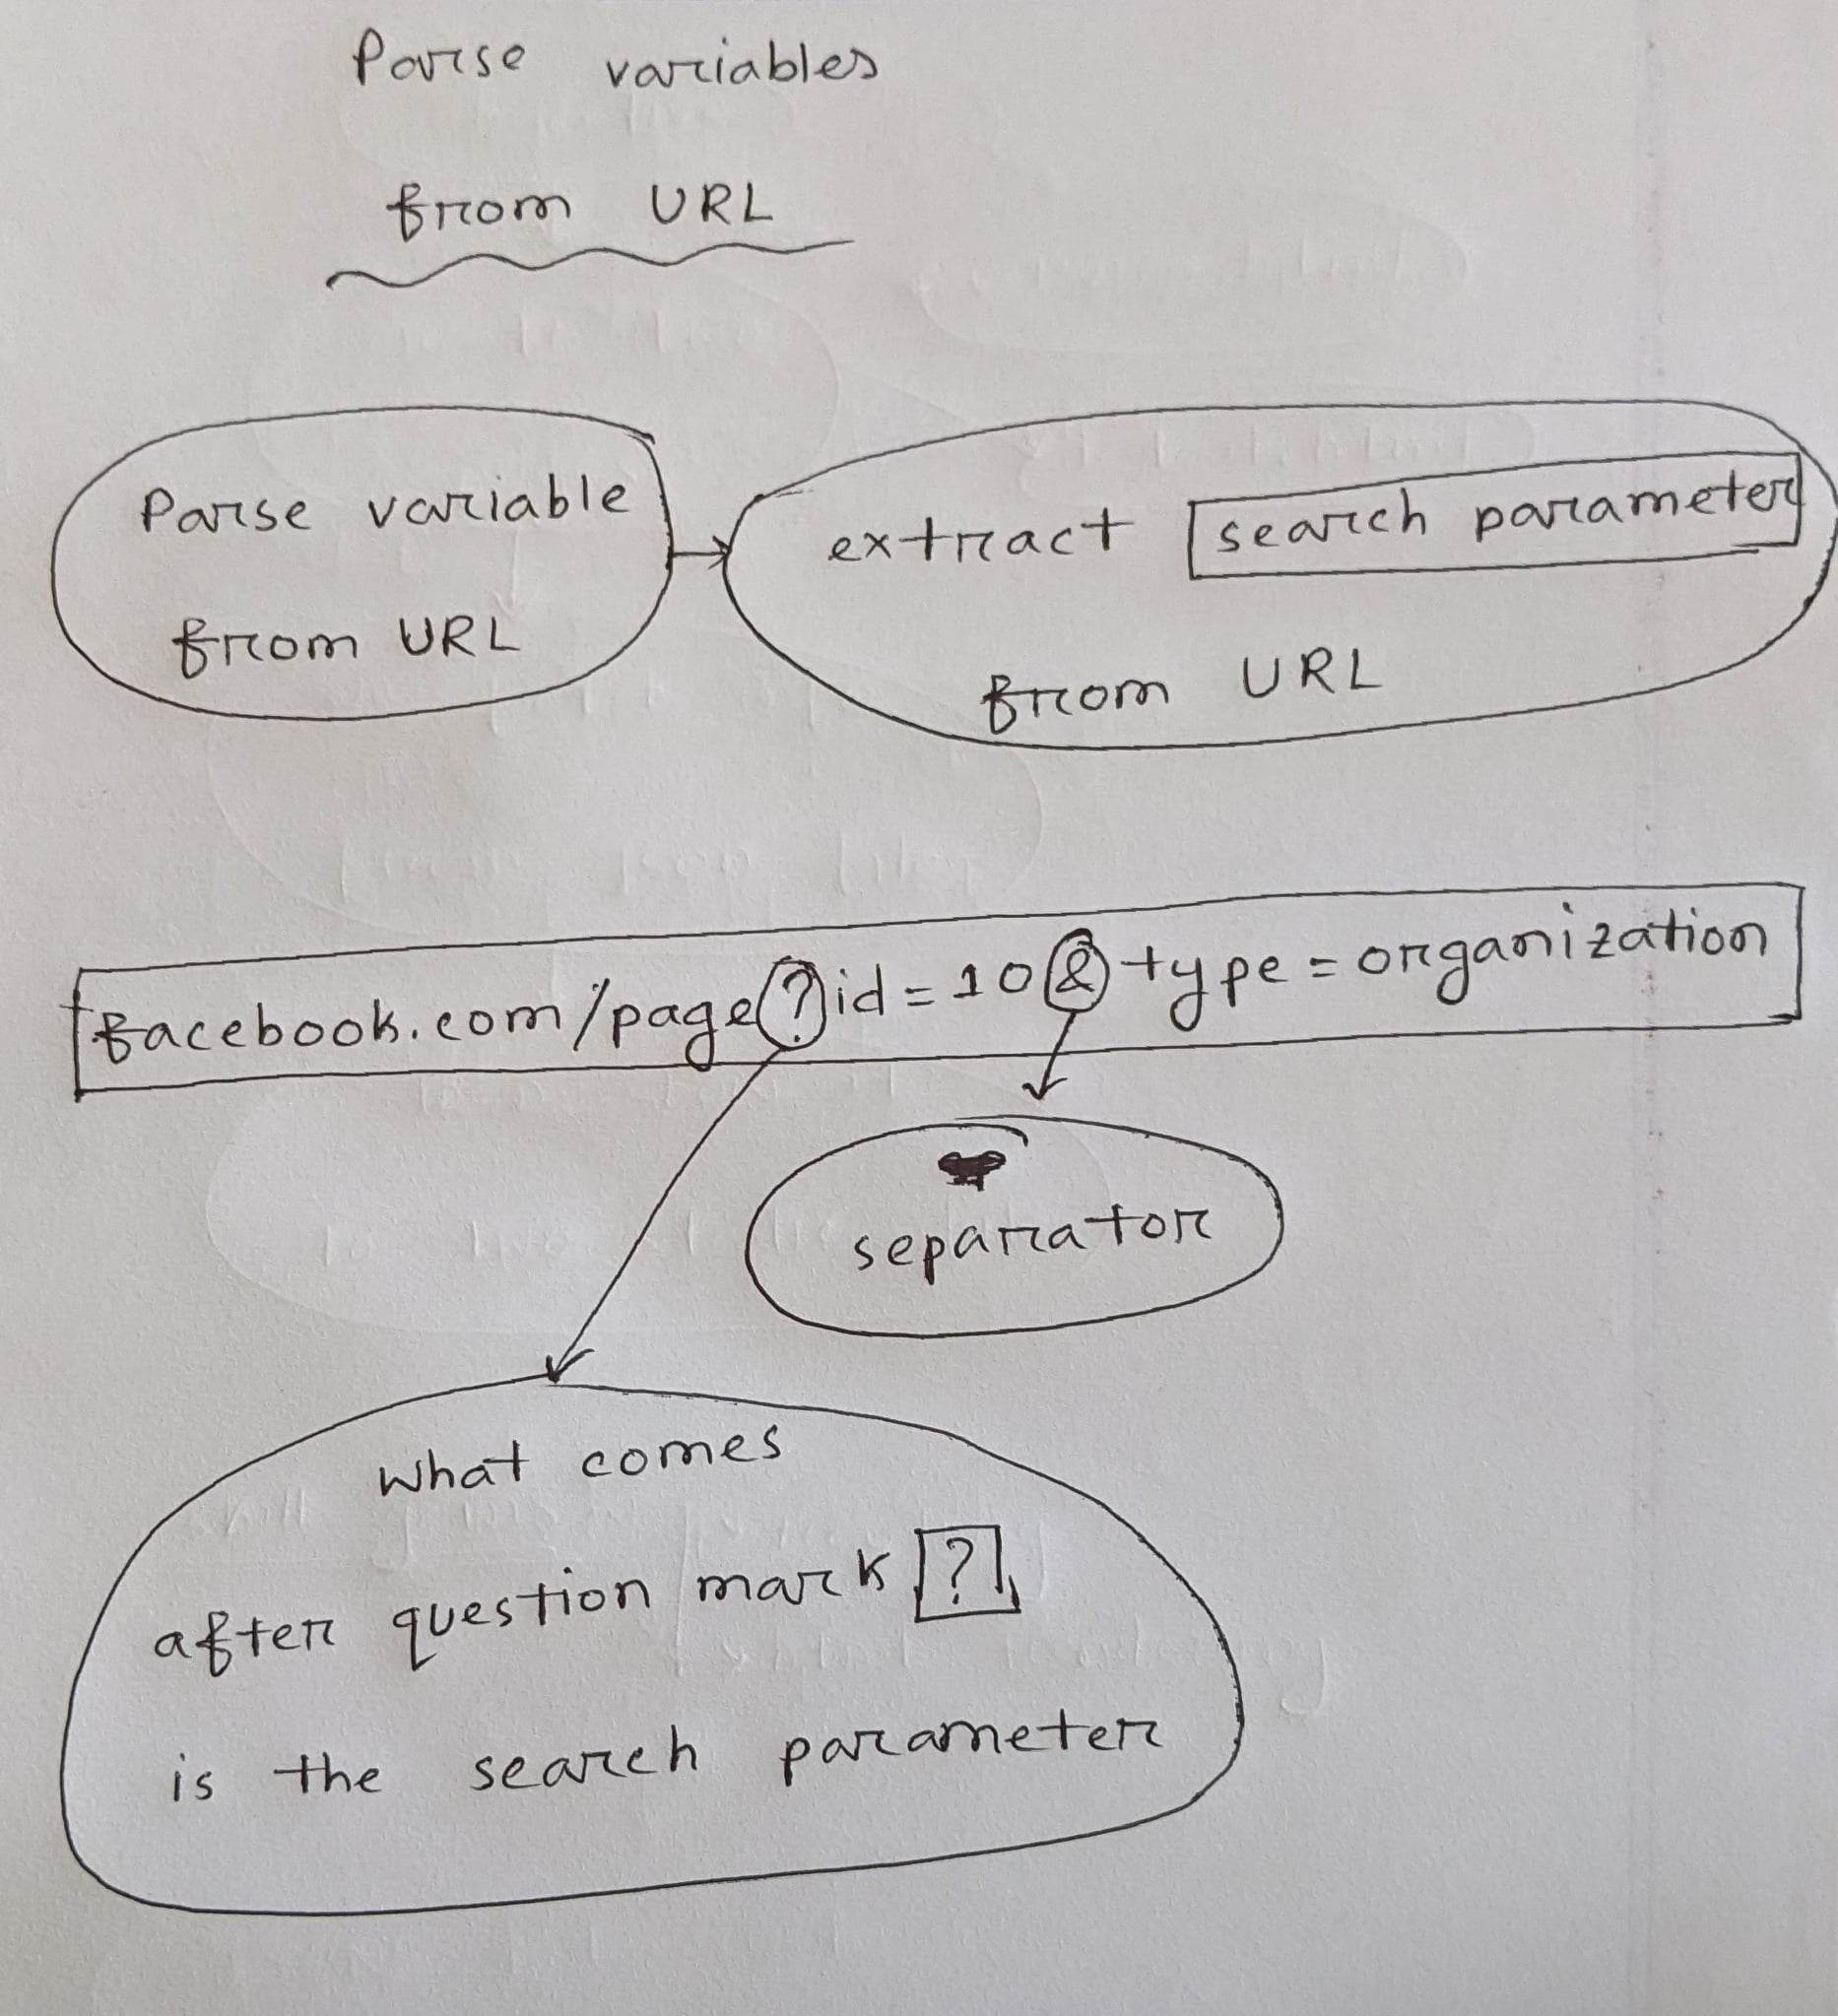 Parse variables
from URL
Parse variable
from URL
extract search parameter
from URL
facebook.com/page?id=10&type=organization
separator
What comes
after question mark ?
is the search parameter